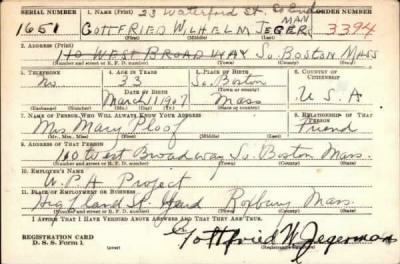 SERIAL NUMBER 1. NAME (Print) 23 Waterford St ORDER NUMBER
1651 GOTTFRIED WILHELM JEGERMAN 3394
(First) (Middle) (Last)
2. ADDRESS (Print)
110 WEST BROADWAY So. BOSTON MASS
(Number and street or R. F. D. number) (Town) (County) (State)
3. TELEPHONE 4. AGE IN YEARS 5. PLACE OF BIRTH 6. COUNTRY OF CITIZENSHIP
No. 33 So. Boston
DATE OF BIRTH
March 1 1907 Mass U S A
(Exchange) (Number) (Mo.) (Day) (Yr.) (State or country)
7. NAME OF PERSON WHO WILL ALWAYS KNOW YOUR ADDRESS 8. RELATIONSHIP OF THAT PERSON
Mrs. Mary Ploof Friend
(Mr., Mrs., Miss) (First) (Middle) (Last)
9. ADDRESS OF THAT PERSON
110 West Broadway So. Boston Mass.
(Number and street or R. F. D. number) (Town) (County) (State)
10. EMPLOYER'S NAME
W.P.A Project
11. PLACE OF EMPLOYMENT OR BUSINESS
Highland St. Yard Roxbury Mass.
(Number and street or R. F. D. number) (Town) (County) (State)
I AFFIRM THAT I HAVE VERIFIED ABOVE ANSWERS AND THAT THEY ARE TRUE.
REGISTRATION CARD
D. S. S. Form 1 Gottfried W. Jegerman
(over) (Registrant's signature)